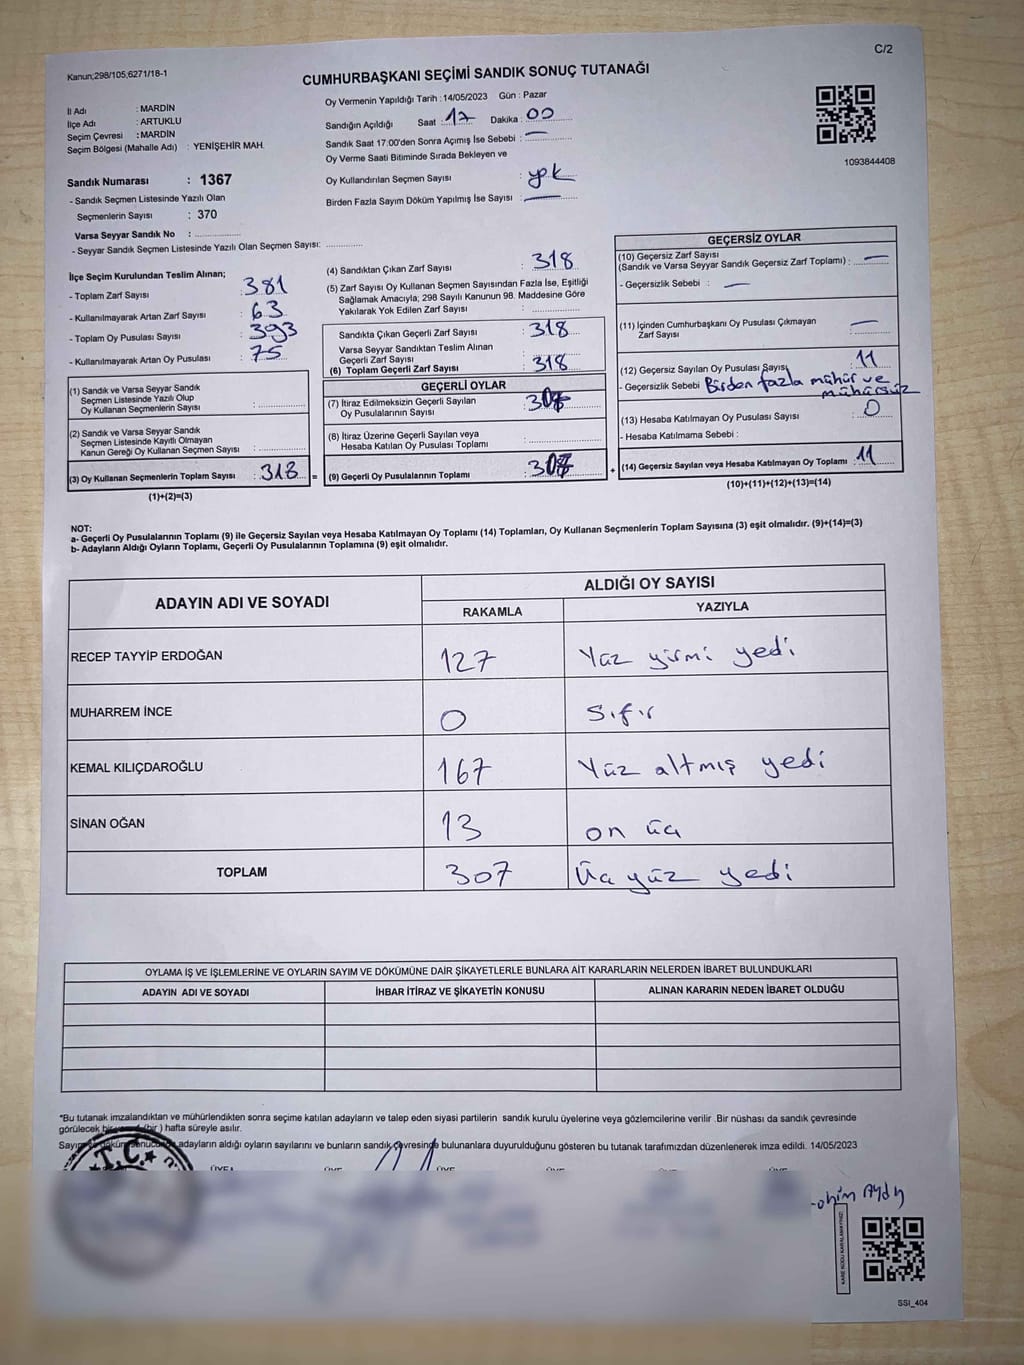 C/2
Kanun;298/105;6271/18-1
CUMHURBAŞKANI SEÇİMİ SANDIK SONUÇ TUTANAĞI
İl Adı : MARDİN
İlçe Adı : ARTUKLU
Seçim Çevresi : MARDİN
Seçim Bölgesi (Mahalle Adı) : YENİŞEHİR MAH.
Sandık Numarası : 1367
- Sandık Seçmen Listesinde Yazılı Olan
Seçmenlerin Sayısı : 370
Varsa Seyyar Sandık No :
- Seyyar Sandık Seçmen Listesinde Yazılı Olan Seçmen Sayısı:
Oy Vermenin Yapıldığı Tarih : 14/05/2023 Gün : Pazar
Sandığın Açıldığı Saat : 17 Dakika : 00
Sandık Saat 17:00'den Sonra Açımış İse Sebebi : —
Oy Verme Saati Bitiminde Sırada Bekleyen ve
Oy Kullandırılan Seçmen Sayısı : yok
Birden Fazla Sayım Döküm Yapılmış İse Sayısı : —
1093844408
İlçe Seçim Kurulundan Teslim Alınan;
- Toplam Zarf Sayısı : 381
- Kullanılmayarak Artan Zarf Sayısı : 63
- Toplam Oy Pusulası Sayısı : 393
- Kullanılmayarak Artan Oy Pusulası : 75
(1) Sandık ve Varsa Seyyar Sandık
Seçmen Listesinde Yazılı Olup
Oy Kullanan Seçmenlerin Sayısı :
(2) Sandık ve Varsa Seyyar Sandık
Seçmen Listesinde Kayıtlı Olmayan
Kanun Gereği Oy Kullanan Seçmen Sayısı :
(3) Oy Kullanan Seçmenlerin Toplam Sayısı : 318 =
(1)+(2)=(3)
(4) Sandıktan Çıkan Zarf Sayısı : 318
(5) Zarf Sayısı Oy Kullanan Seçmen Sayısından Fazla İse, Eşitliği
Sağlamak Amacıyla; 298 Sayılı Kanunun 98. Maddesine Göre
Yakılarak Yok Edilen Zarf Sayısı :
Sandıkta Çıkan Geçerli Zarf Sayısı : 318
Varsa Seyyar Sandıktan Teslim Alınan
Geçerli Zarf Sayısı :
(6) Toplam Geçerli Zarf Sayısı : 318
GEÇERLİ OYLAR
(7) İtiraz Edilmeksizin Geçerli Sayılan
Oy Pusulalarının Sayısı : 307
(8) İtiraz Üzerine Geçerli Sayılan veya
Hesaba Katılan Oy Pusulası Toplamı :
(9) Geçerli Oy Pusulalarının Toplamı : 307 +
GEÇERSİZ OYLAR
(10) Geçersiz Zarf Sayısı
(Sandık ve Varsa Seyyar Sandık Geçersiz Zarf Toplamı) : —
- Geçersizlik Sebebi : —
(11) İçinden Cumhurbaşkanı Oy Pusulası Çıkmayan
Zarf Sayısı : —
(12) Geçersiz Sayılan Oy Pusulası Sayısı : 11
- Geçersizlik Sebebi Birden fazla mühür ve
mühürsüz
(13) Hesaba Katılmayan Oy Pusulası Sayısı : 0
- Hesaba Katılmama Sebebi :
(14) Geçersiz Sayılan veya Hesaba Katılmayan Oy Toplamı : 11
(10)+(11)+(12)+(13)=(14)
NOT:
a- Geçerli Oy Pusulalarının Toplamı (9) ile Geçersiz Sayılan veya Hesaba Katılmayan Oy Toplamı (14) Toplamları, Oy Kullanan Seçmenlerin Toplam Sayısına (3) eşit olmalıdır. (9)+(14)=(3)
b- Adayların Aldığı Oyların Toplamı, Geçerli Oy Pusulalarının Toplamına (9) eşit olmalıdır.
ADAYIN ADI VE SOYADI
ALDIĞI OY SAYISI
RAKAMLA YAZIYLA
RECEP TAYYİP ERDOĞAN 127 Yüz yirmi yedi
MUHARREM İNCE 0 Sıfır
KEMAL KILIÇDAROĞLU 167 Yüz altmış yedi
SİNAN OĞAN 13 on üç
TOPLAM 307 Üç yüz yedi
OYLAMA İŞ VE İŞLEMLERİNE VE OYLARIN SAYIM VE DÖKÜMÜNE DAİR ŞİKAYETLERLE BUNLARA AİT KARARLARIN NELERDEN İBARET BULUNDUKLARI
ADAYIN ADI VE SOYADI İHBAR İTİRAZ VE ŞİKAYETİN KONUSU ALINAN KARARIN NEDEN İBARET OLDUĞU
*Bu tutanak imzalandıktan ve mühürlendikten sonra seçime katılan adayların ve talep eden siyasi partilerin sandık kurulu üyelerine veya gözlemcilerine verilir .Bir nüshası da sandık çevresinde
görülecek bir (bir ) hafta süreyle asılır.
adayların aldığı oyların sayılarını ve bunların sandık çevresinde bulunanlara duyurulduğunu gösteren bu tutanak tarafımızdan düzenlenerek imza edildi. 14/05/2023
T.C.
ÜYE ÜYE
SSI_404